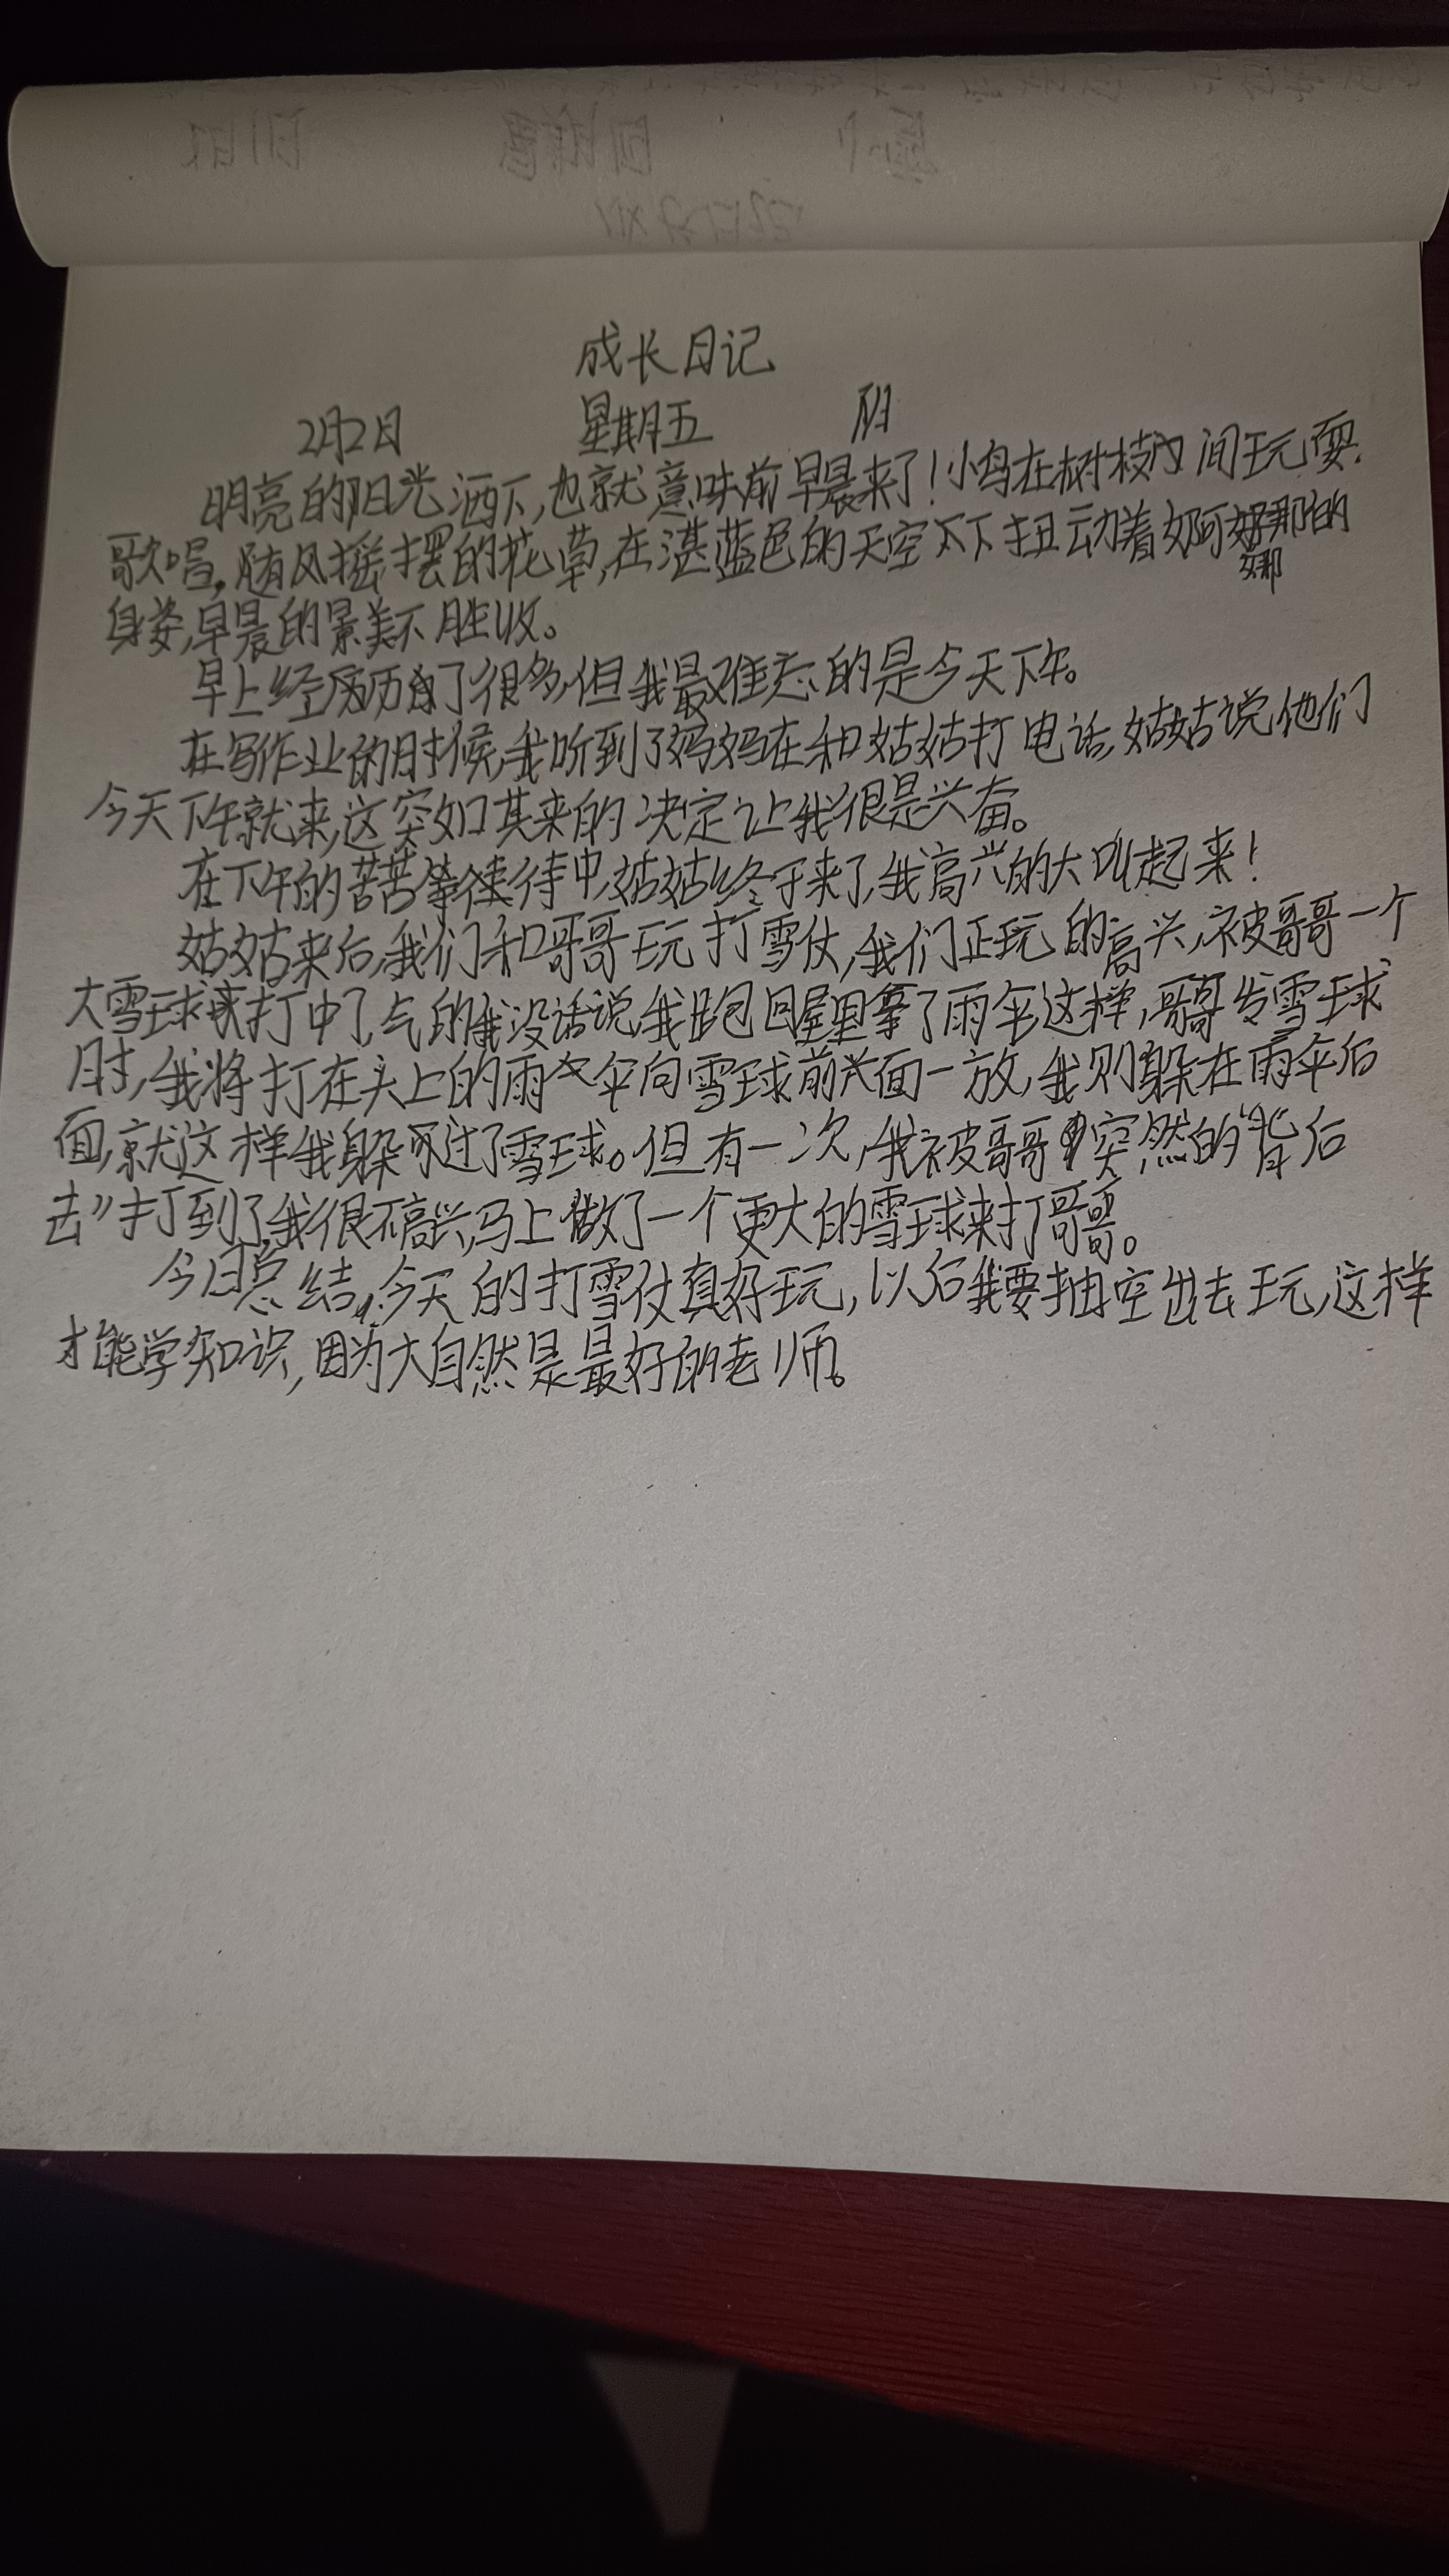 成长日记
2月2日 星期五 阴
明亮的阳光洒下,也就意味前早晨来了!小鸟在树枝间玩耍.
歌唱,随风摇摆的花草,在湛蓝色的天空下扭动着婀娜的
身姿,早晨的景美不胜收。
早上经历了很多,但我最难忘的是今天下午。
在写作业的时候,我听到了妈妈在和姑姑打电话,姑姑说他们
今天下午就来,这突如其来的决定让我很是兴奋。
在下午的苦苦等待中,姑姑终于来了,我高兴的大叫起来!
姑姑来后,我们和哥哥玩打雪仗,我们正玩的高兴,被哥哥一个
大雪球打中了,气的我没话说,我跑回屋里拿了雨伞,这样,哥哥发雪球
时,我将打在头上的雨伞向雪球前面一放,我则躲在雨伞后
面,就这样我躲过了雪球。但有一次,我被哥哥突然的“背后
去”打到了,我很不高兴,马上做了一个更大的雪球来打哥哥。
今日总结,今天的打雪仗真好玩,以后我要抽空出去玩,这样
才能学知识,因为大自然是最好的老师。